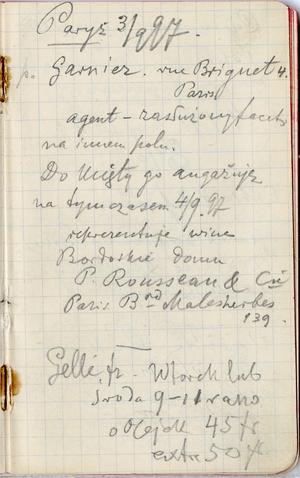 Paryż 3/9 97.
p. Garnier. rue Briguet 4.
Paris
agent – zasłużony facet
na innem polu.
Do go angażuję
na tymczasem 4/9. 97
reprezentuje wina
Bordoskie domu
P. Rousseau & Cie
Paris Bd Malesherbes
139.
Gellé fr - Wtorek lub
środa 9-11 rano
olejek 45 fr
extra 50 fr